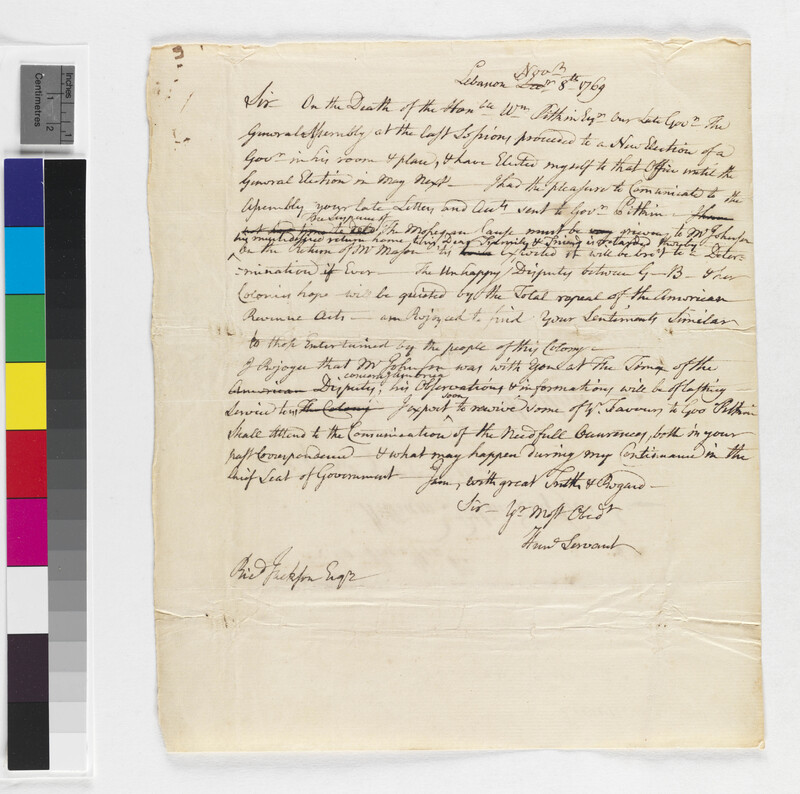 Inches
Centimetres
1
2
Novr
Lebanon Decr 8th 1769
Sir On the Death of the Honble Wm Pitkin Esqr Our Late Govr The
General Assembly at the last Sessions proceeded to a New Election of a
Govr in his room & place, & have Elected myself to that Office until the
General Election in May Next — I had the pleasure to Comunicate to the
Assembly your late Letters and Accts sent to Govr Pitkin — I have
the suspense of
not had time to The Mohegan Cause must be very grievous to Mr Johnson
his much desired return home to his Dear Family & Friends is retarded thereby
On the Return of Mr Mason tis hoped Expected it will be bro't to a Deter-
mination if Ever — The Unhappy Disputes between G— B— & her
Colonies hope will be quieted by the Total repeal of the American
Revenue Acts — am Rejoyced to find Your Sentiments Similar
to those Entertained by the people of this Colony —
I Rejoyce that Mr Johnson was with You at the Time of the
concerning America
American Disputes; his Observations & informations will be of lasting
soon
Service to us the Colony I expect to receive some of yr Favours to Govr Pitkin
Shall attend to the Comunication of the Needfull Occurences, both in your
past Correspondence & what may happen during my Continuance in the
Chief Seat of Government — I am, with great Truth & Regard —
Sir — Yr Most Obedt
Humle Servant
Richd Jackson Esqr